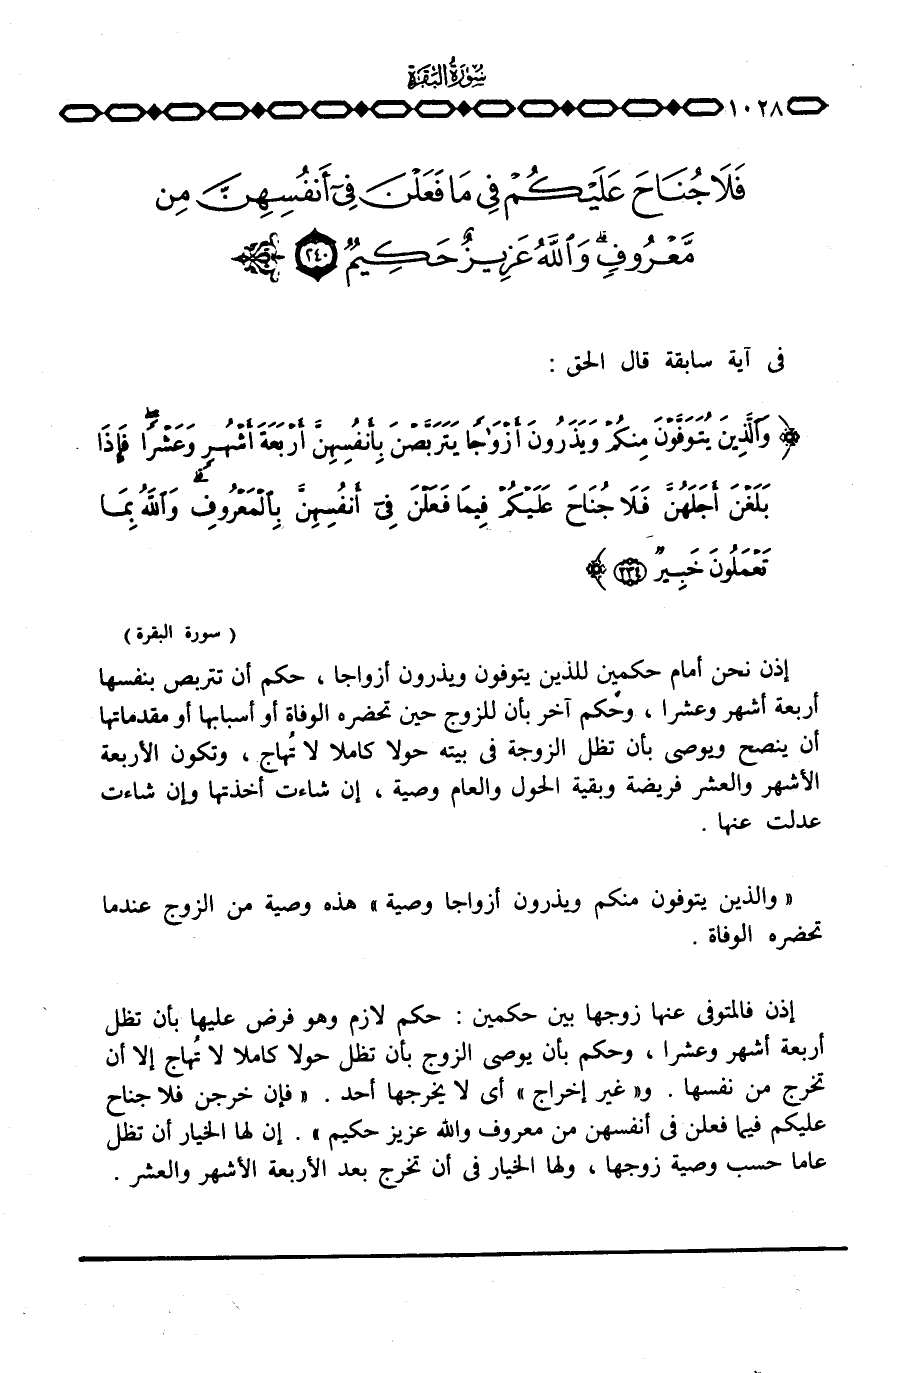 سورة البقرة
١٠٢٨
فَلَا جُنَاحَ عَلَيْكُمْ فِي مَا فَعَلْنَ فِيٓ أَنفُسِهِنَّ مِن
مَّعْرُوفٍ ۗ وَٱللَّهُ عَزِيزٌ حَكِيمٌ ٢٤٠
فى آية سابقة قال الحق :
﴿ وَٱلَّذِينَ يُتَوَفَّوْنَ مِنكُمْ وَيَذَرُونَ أَزْوَٰجًا يَتَرَبَّصْنَ بِأَنفُسِهِنَّ أَرْبَعَةَ أَشْهُرٍ وَعَشْرًا ۖ فَإِذَا
بَلَغْنَ أَجَلَهُنَّ فَلَا جُنَاحَ عَلَيْكُمْ فِيمَا فَعَلْنَ فِيٓ أَنفُسِهِنَّ بِٱلْمَعْرُوفِ ۗ وَٱللَّهُ بِمَا
تَعْمَلُونَ خَبِيرٌ ٢٣٤ ﴾
( سورة البقرة )
إذن نحن أمام حكمين للذين يتوفون ويذرون أزواجا ، حكم أن تتربص بنفسها
أربعة أشهر وعشرا ، وحُكم آخر بأن للزوج حين تحضره الوفاة أو أسبابها أو مقدماتها
أن ينصح ويوصى بأن تظل الزوجة فى بيته حولا كاملا لا تُهاج ، وتكون الأربعة
الأشهر والعشر فريضة وبقية الحول والعام وصية ، إن شاءت أخذتها وإن شاءت
عدلت عنها .
« والذين يتوفون منكم ويذرون أزواجا وصية » هذه وصية من الزوج عندما
تحضره الوفاة .
إذن فالمتوفى عنها زوجها بين حكمين : حكم لازم وهو فرض عليها بأن تظل
أربعة أشهر وعشرا ، وحكم بأن يوصى الزوج بأن تظل حولا كاملا لا تُهاج إلا أن
تخرج من نفسها . و« غير إخراج » أى لا يخرجها أحد . « فإن خرجن فلا جناح
عليكم فيما فعلن فى أنفسهن من معروف والله عزيز حكيم » . إن لها الخيار أن تظل
عاما حسب وصية زوجها ، ولها الخيار فى أن تخرج بعد الأربعة الأشهر والعشر .